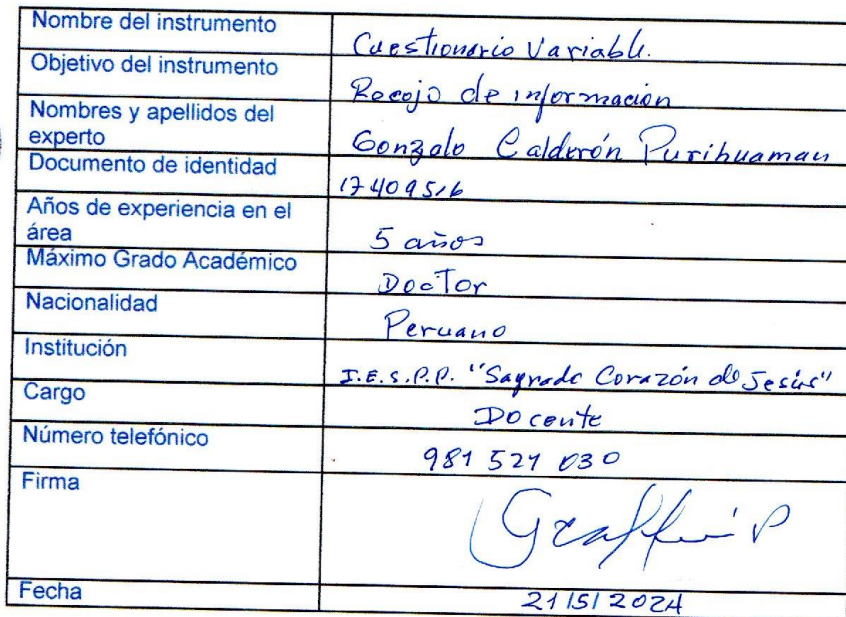 Nombre del instrumento
Cuestionario Variable.
Objetivo del instrumento
Recojo de información
Nombres y apellidos del
experto
Gonzalo Calderón Purihuaman
Documento de identidad
17409516
Años de experiencia en el
área
5 años
Máximo Grado Académico
Doctor
Nacionalidad
Peruano
Institución
I.E.S.P.P. "Sagrado Corazón de Jesús"
Cargo
Docente
Número telefónico
981 521 030
Firma
Fecha
21/5/2024